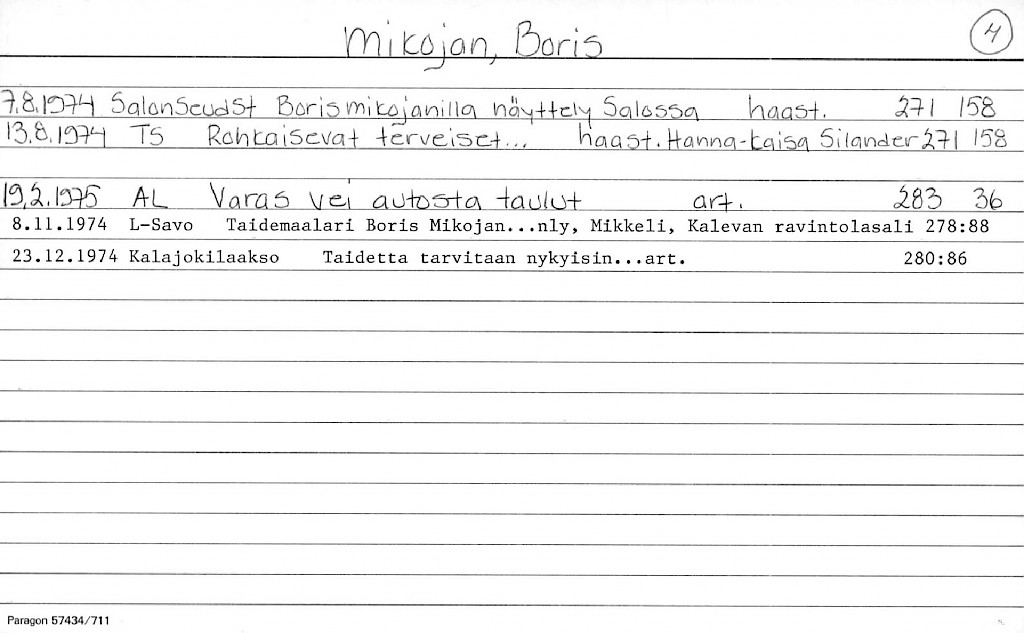 Mikojan, Boris
4
7.8.1974 SalonSeudSt Boris mikojanilla näyttely Salossa haast. 271 158
13.8.1974 TS Rohkaisevat terveiset... haast. Hanna-Kaisa Silander 271 158
19.2.1975 AL Varas vei autosta taulut art. 283 36
8.11.1974 L-Savo Taidemaalari Boris Mikojan...nly, Mikkeli, Kalevan ravintolasali 278:88
23.12.1974 Kalajokilaakso Taidetta tarvitaan nykyisin...art. 280:86
Paragon 57434/711